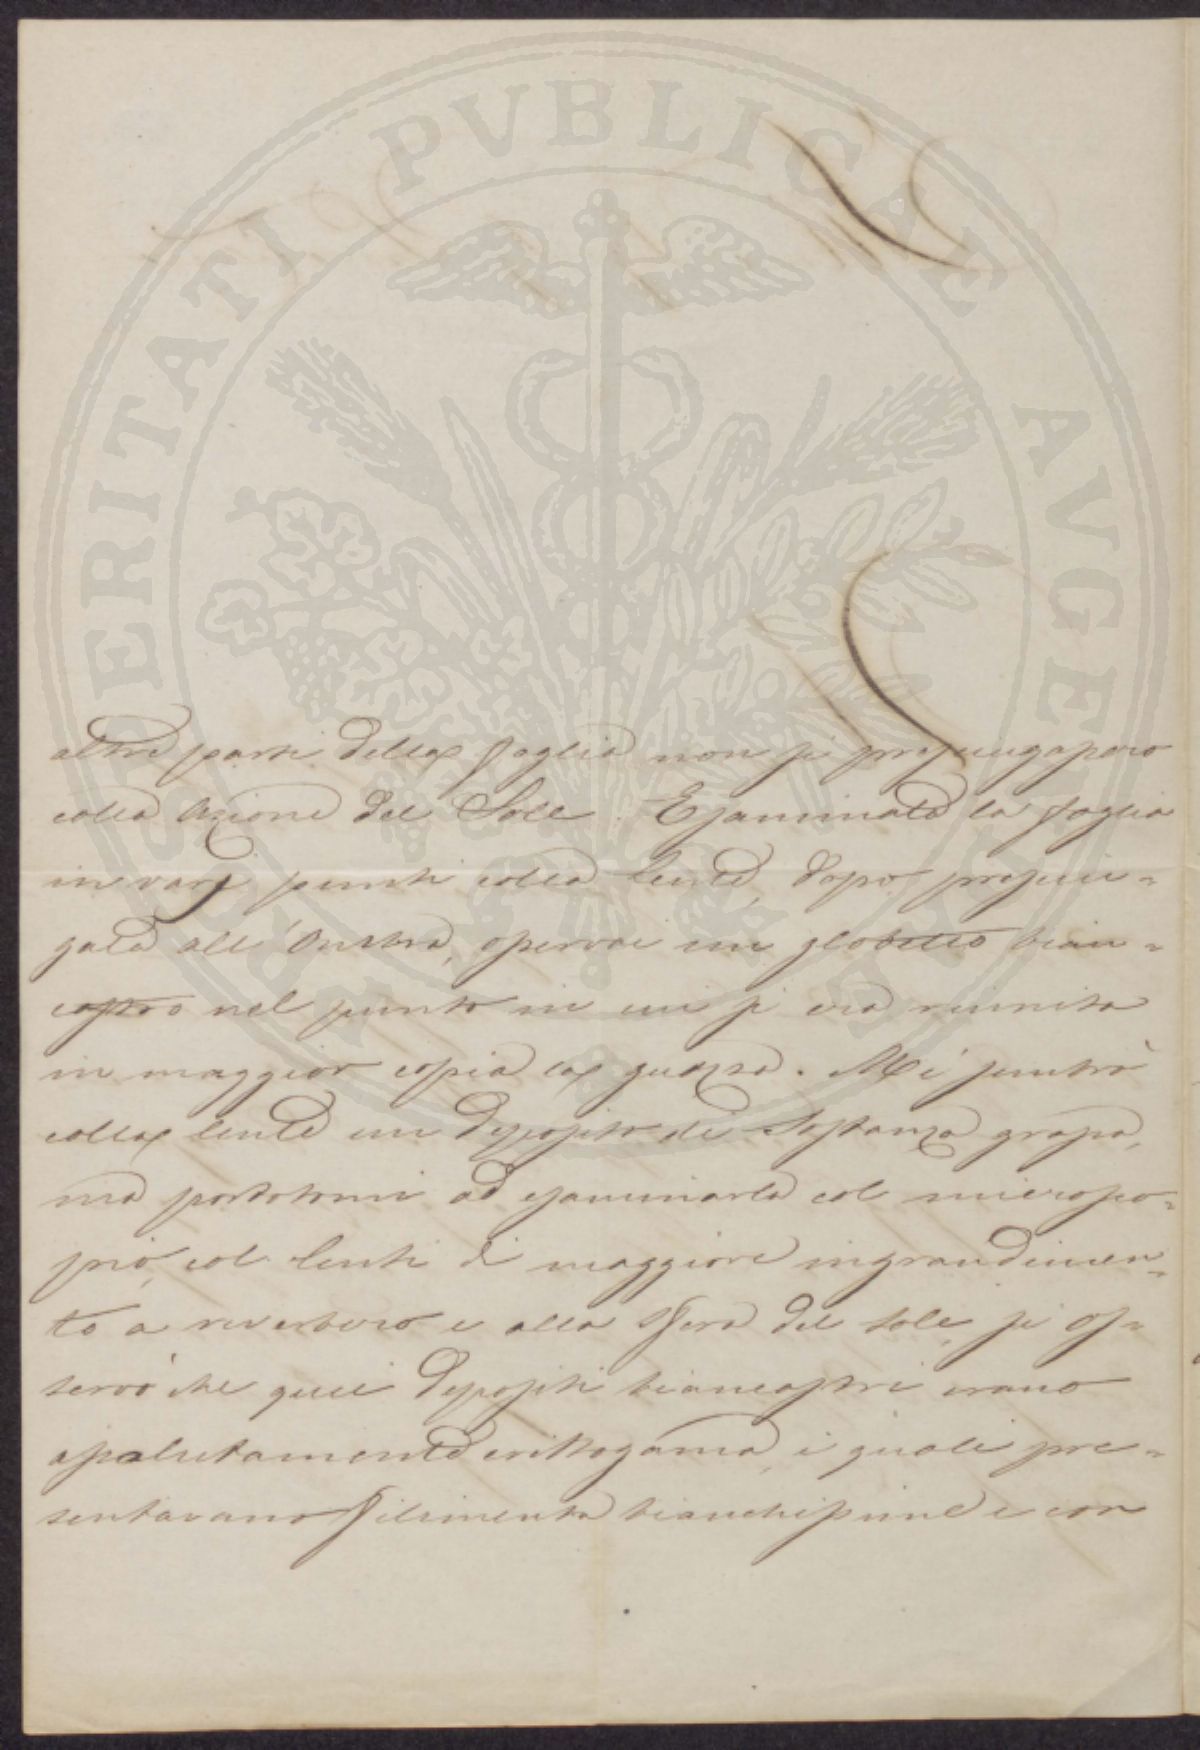 PROSPERITATI PVBLICAE AVGENDAE
altre parti della foglia non si prosciugassero
colla azione del Sole. Esaminata la foglia
in varj punti colla lente, dopo prosciu=
gata all'ombra, osservai un globetto bian=
castro nel punto in cui si era riunita
in maggior copia la guazza. Mi sembrò
colla lente un deposito di sostanza grassa,
ma portatomi ad esaminarla col microsco=
pio, col lenti di maggiore ingrandimen=
to a reverbero e alla sfera del sole, si os=
servò che quei depositi biancastri erano
assolutamente crittogama, i quali pre=
sentavano filamenta bianchissime e con